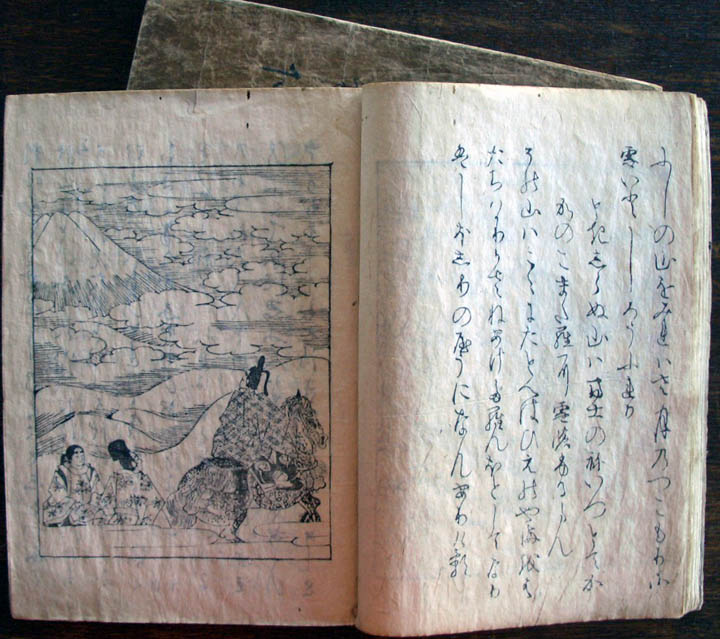 ふしの山をみれハさ月のつこもりに
雪いとしろうふれり
ときしらぬ山ハ富士のねいつとてか
かのこまたらに雪のふるらん
その山ハこゝにたとへはひえの山をは
たちハかりかさねあけたらんほとしてなり
はしほしりのやうになんありける